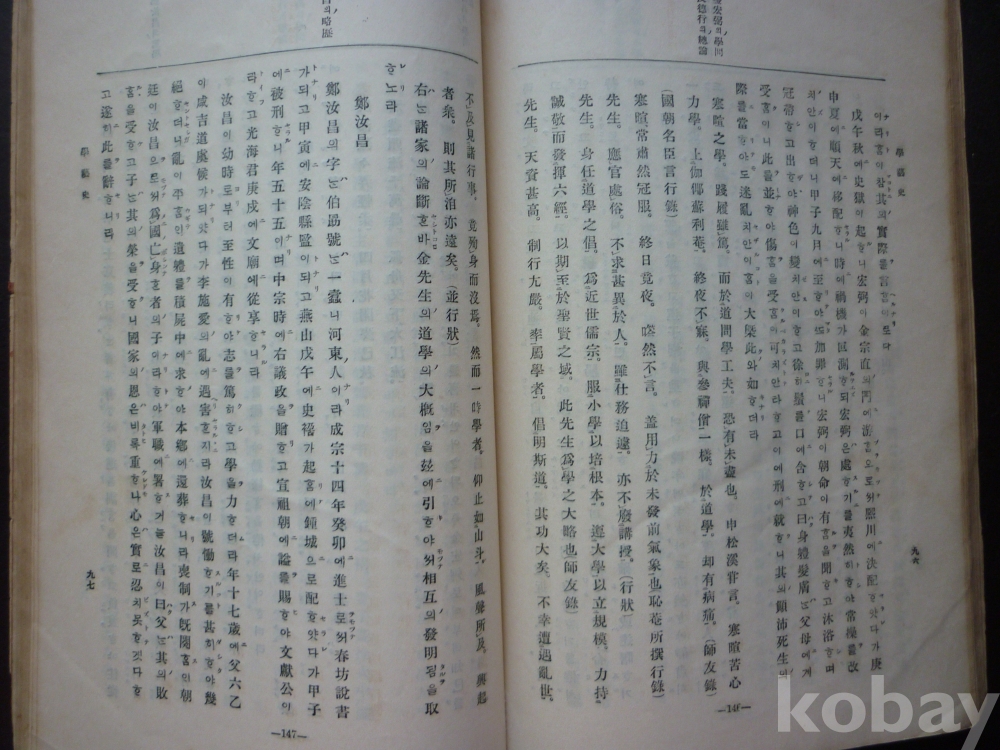 學藝史
九六
이라홈이참其의實際를言홈이로다
戊午秋에史獄이起하니宏弼이金宗直의門에游홈으로써熙川에決配하얏다가庚
申夏에順天에移配하니時에禍機가叵測하되宏弼은處하기를夷然히하야常操를改
치안이하더니甲子九月에至하야加罪하니宏弼이朝命이有홈을聞하고沐浴하며
冠帶하고出하야神色이變치안이하고徐히鬚를口에含하고曰身體髮膚는父母에게
受홈이니此를並하야傷홈을受홈이可치안타하고이에刑에就하니其의顚沛死生의
際를當하야도迷亂치안이홈이大槩此와如하더라
寒暄之學。踐履雖篤。而於道問學工夫。恐有未盡也。申松溪甞言。寒暄苦心
力學。上伽倻蘇利菴。終夜不寐。與參禪僧一樣。於道學。却有病痛。(師友錄)
(國朝名臣言行錄)
寒暄常肅然冠服。終日竟夜。嘿然不言。盖用力於未發前氣象也恥菴所撰行錄)
先生。應官處俗。不求甚異於人。雖仕務追遽。亦不廢講授。(行狀)
先生。身任道學之倡。爲近世儒宗。服小學以培根本。遵大學以立規模。力持
誠敬而發揮六經。以期至於聖賢之域。此先生爲學之大略也師友錄)
先生。天資甚高。制行尤嚴。率屬學者。倡明斯道。其功大矣。不幸遭過亂世。
—146—
不及見諸行事。竟殉身而沒焉。然而一時學者。仰止如山斗。風聲所及。興起
者衆。則其所治亦遠矣。(並行狀)
右는諸家의論斷한바金先生의道學의大槪임을玆에引하야써相互의發明됨을取
하노라
鄭汝昌
鄭汝昌의字는伯勗號는一蠹니河東人이라成宗十四年癸卯에進士로써春坊說書
가되고甲寅에安陰縣監이되고燕山戊午에史禍가起홈에鍾城으로配하얏다가甲子
에被刑하니年五十五이며中宗時에右議政을贈하고宣祖朝에諡를賜하야文獻公이
라하고光海君庚戌에文廟에從享하니라
汝昌이幼時로부터至性이有하야志를篤히하고學을力하더라年十七歲에父六乙
이咸吉道虞候가되얏다가李施愛의亂에遇害하지라汝昌이號慟하기를甚히하야幾
絕하더니亂이平홈인遺體를積屍中에求하야本鄕에還葬하니라喪制가旣闋홈인朝
廷이汝昌으로써爲國亡身한者의子이라하야軍職에署하거늘汝昌이曰父는其의敗
홈을受하고子는其의榮을受하니國家의恩은비록重하나心은實로忍치못하겟다하
고遂히此를辭하니라
學藝史
九七
—147—
kobay